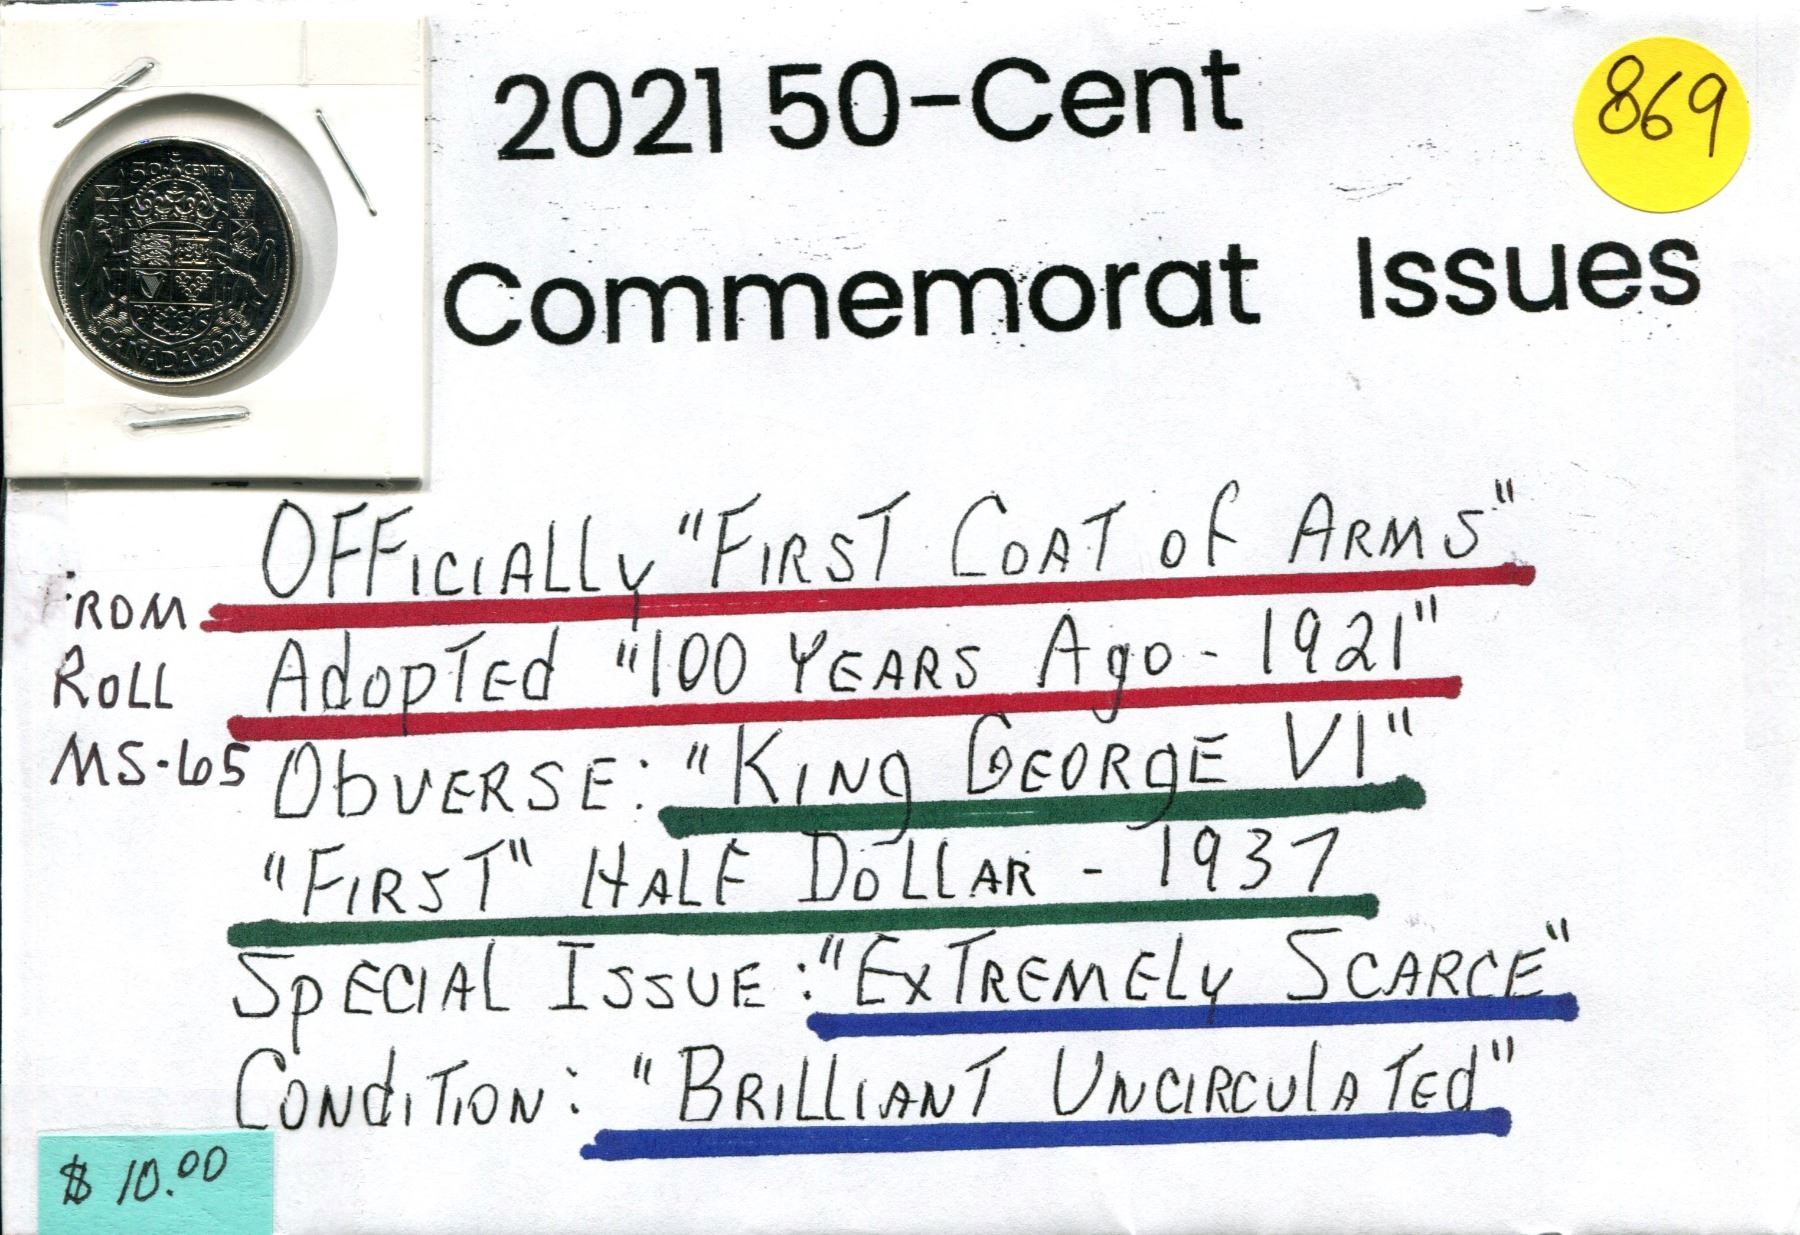 50 CENTS
CANADA 2021
2021 50-Cent
869
Commemorat Issues
OFFICIALLY "FIRST COAT OF ARMS"
Adopted "100 YEARS Ago - 1921"
ROM
ROLL
MS-65
OBVERSE: "KING GEORGE VI"
"FIRST" HALF DOLLAR - 1937
SPECIAL ISSUE: "EXTREMELY SCARCE"
CONDITION: "BRILLIANT UNCIRCULATED"
$10.00